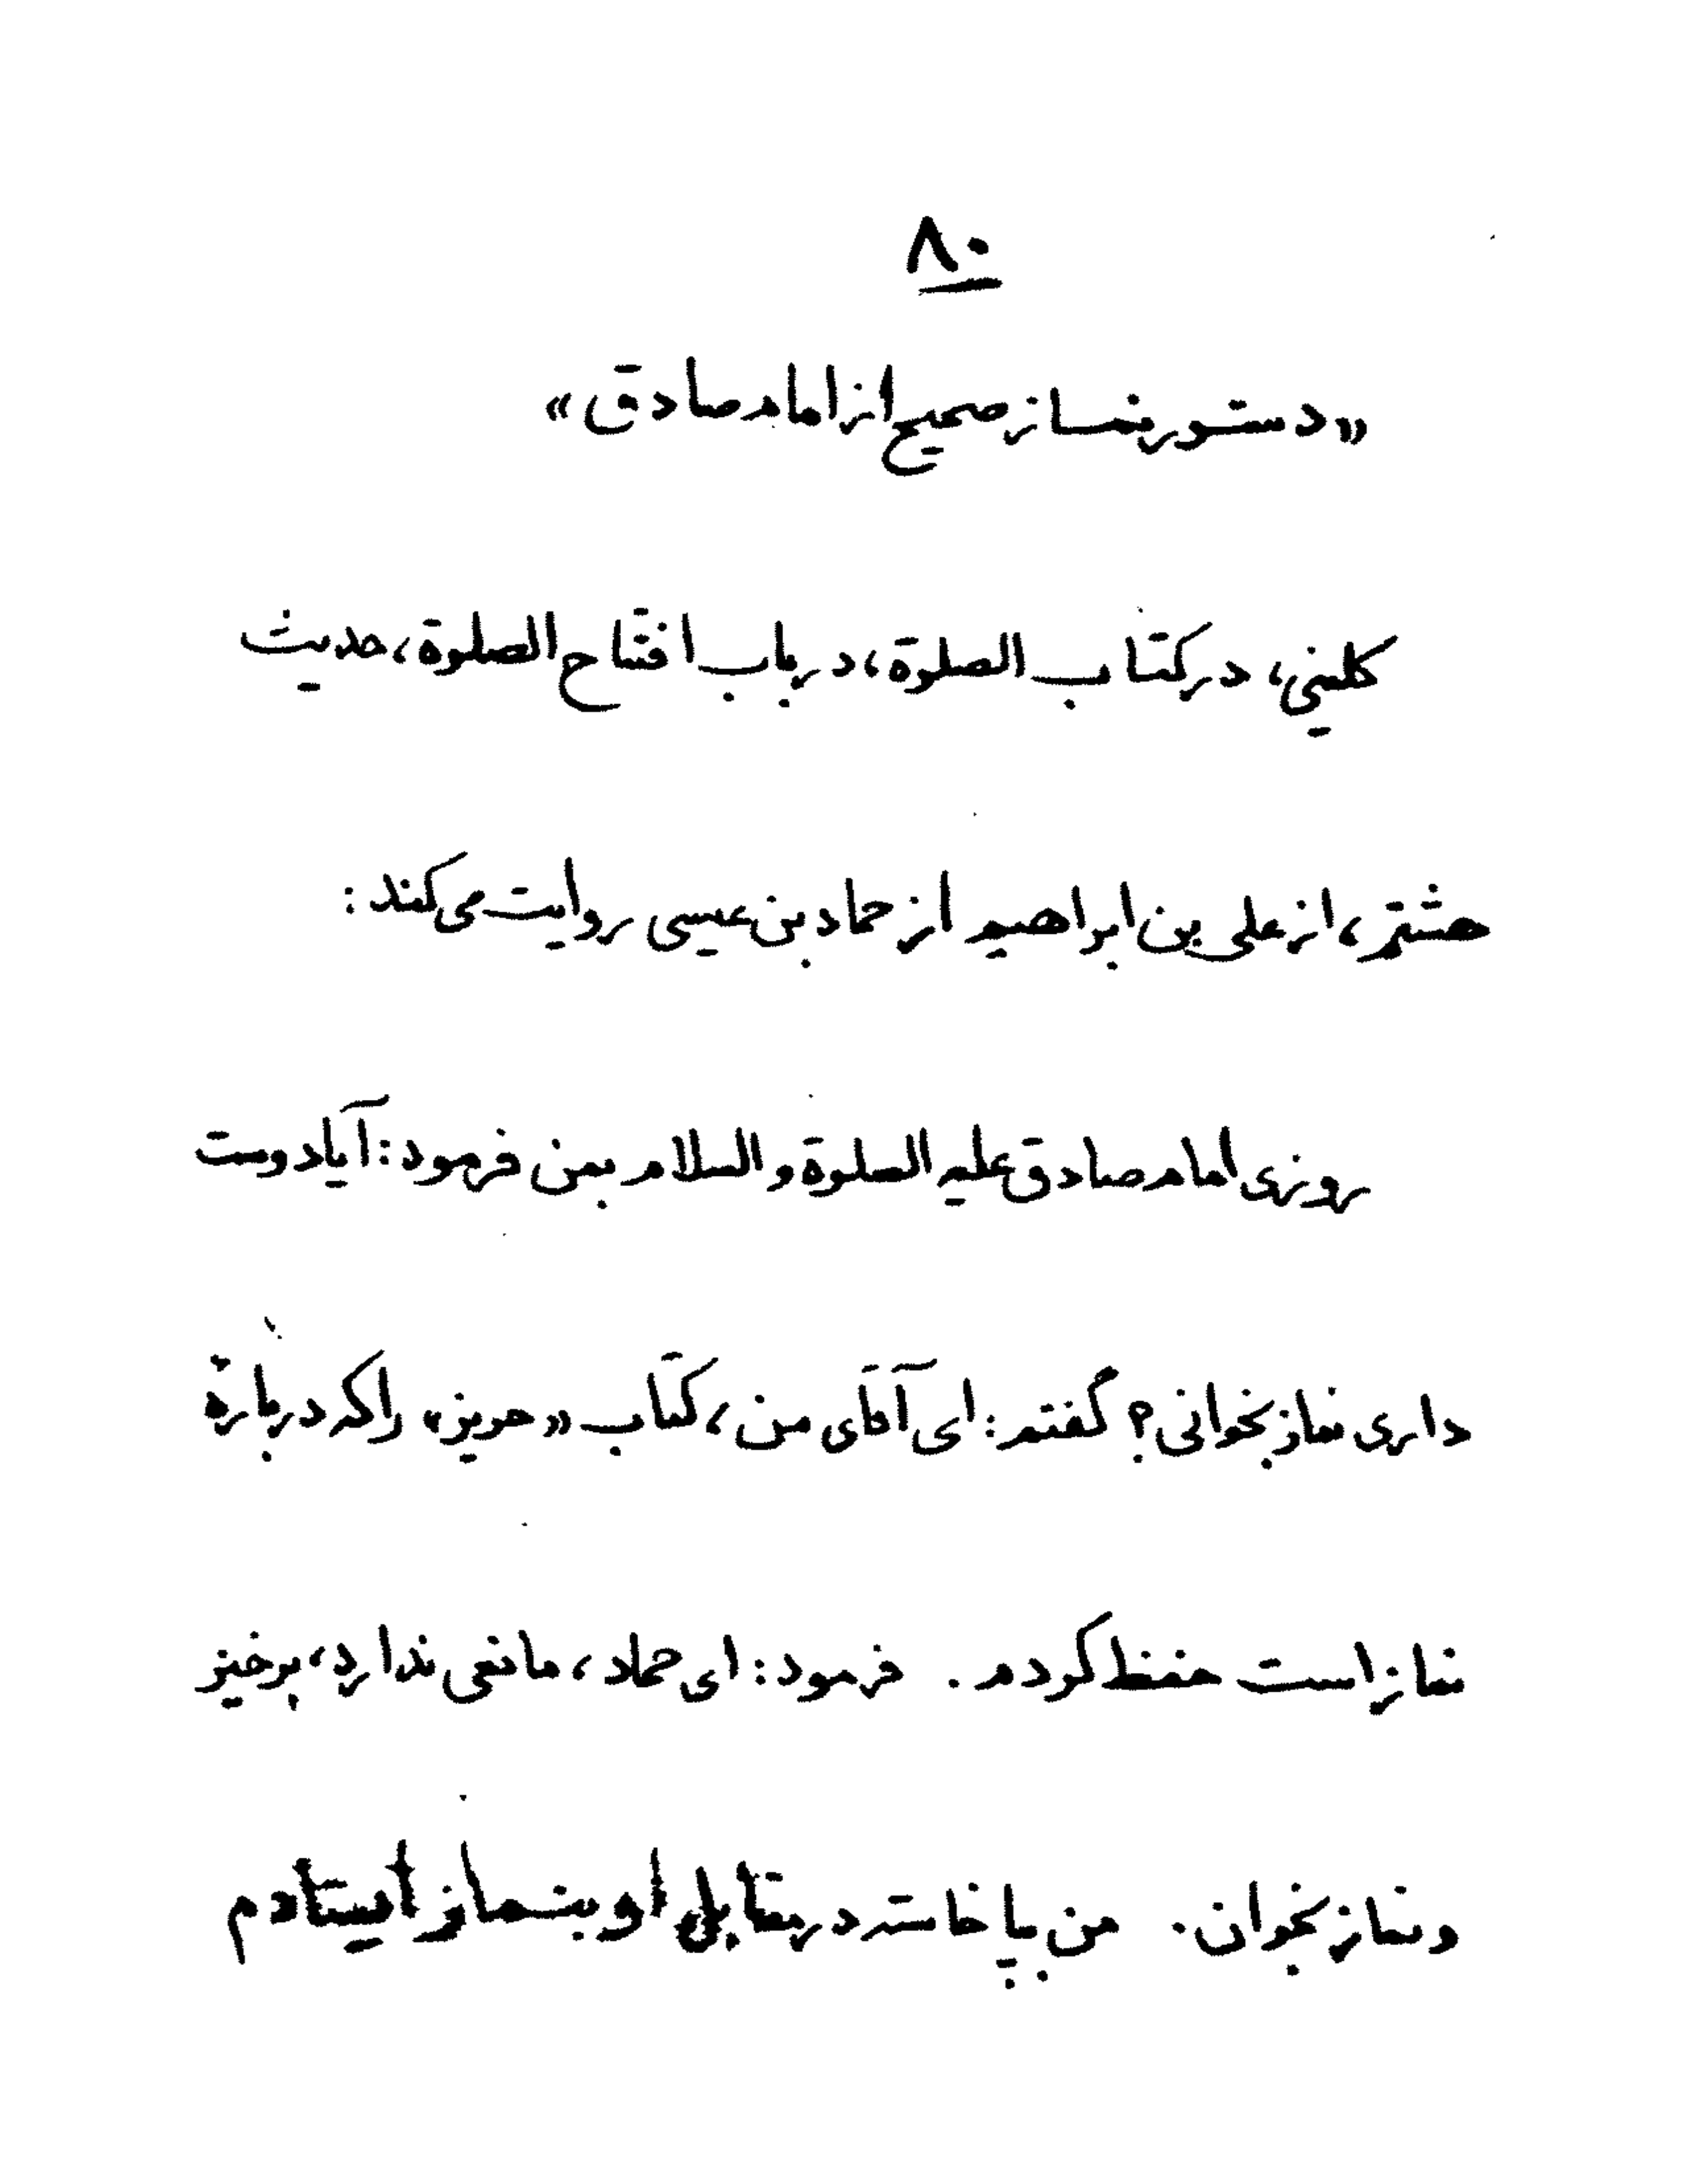 ۸۰
«دستور نماز صحیح از امام صادق»
کلینی، در کتاب الصلوة، در باب افتتاح الصلوة، حدیث
هشتم، از علی بن ابراهیم از حماد بن عیسی روایت می‌کند:
روزی امام صادق علیه الصلوة و السلام بمن فرمود: آیا دوست
داری نماز بخوانی؟ گفتم: ای آقای من، کتاب «حریز» را که دربارهٔ
نماز است حفظ کردم. فرمود: ای حماد، مانعی ندارد، برخیز
و نماز بخوان. من بپا خاسته در مقابل او بنماز ایستادم